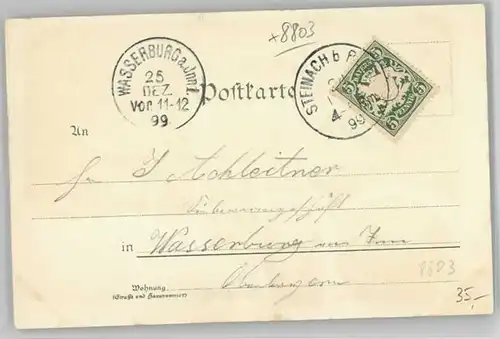 x8803
WASSERBURG a. Inn I.
25
DEZ
Vor 11-12
99
Postkarte
STEINACH b
4
99
5
An
J. Achleitner
in Wasserburg am Inn
Oberbayern
8803
Wohnung
(Straße und Hausnummer)
35,-